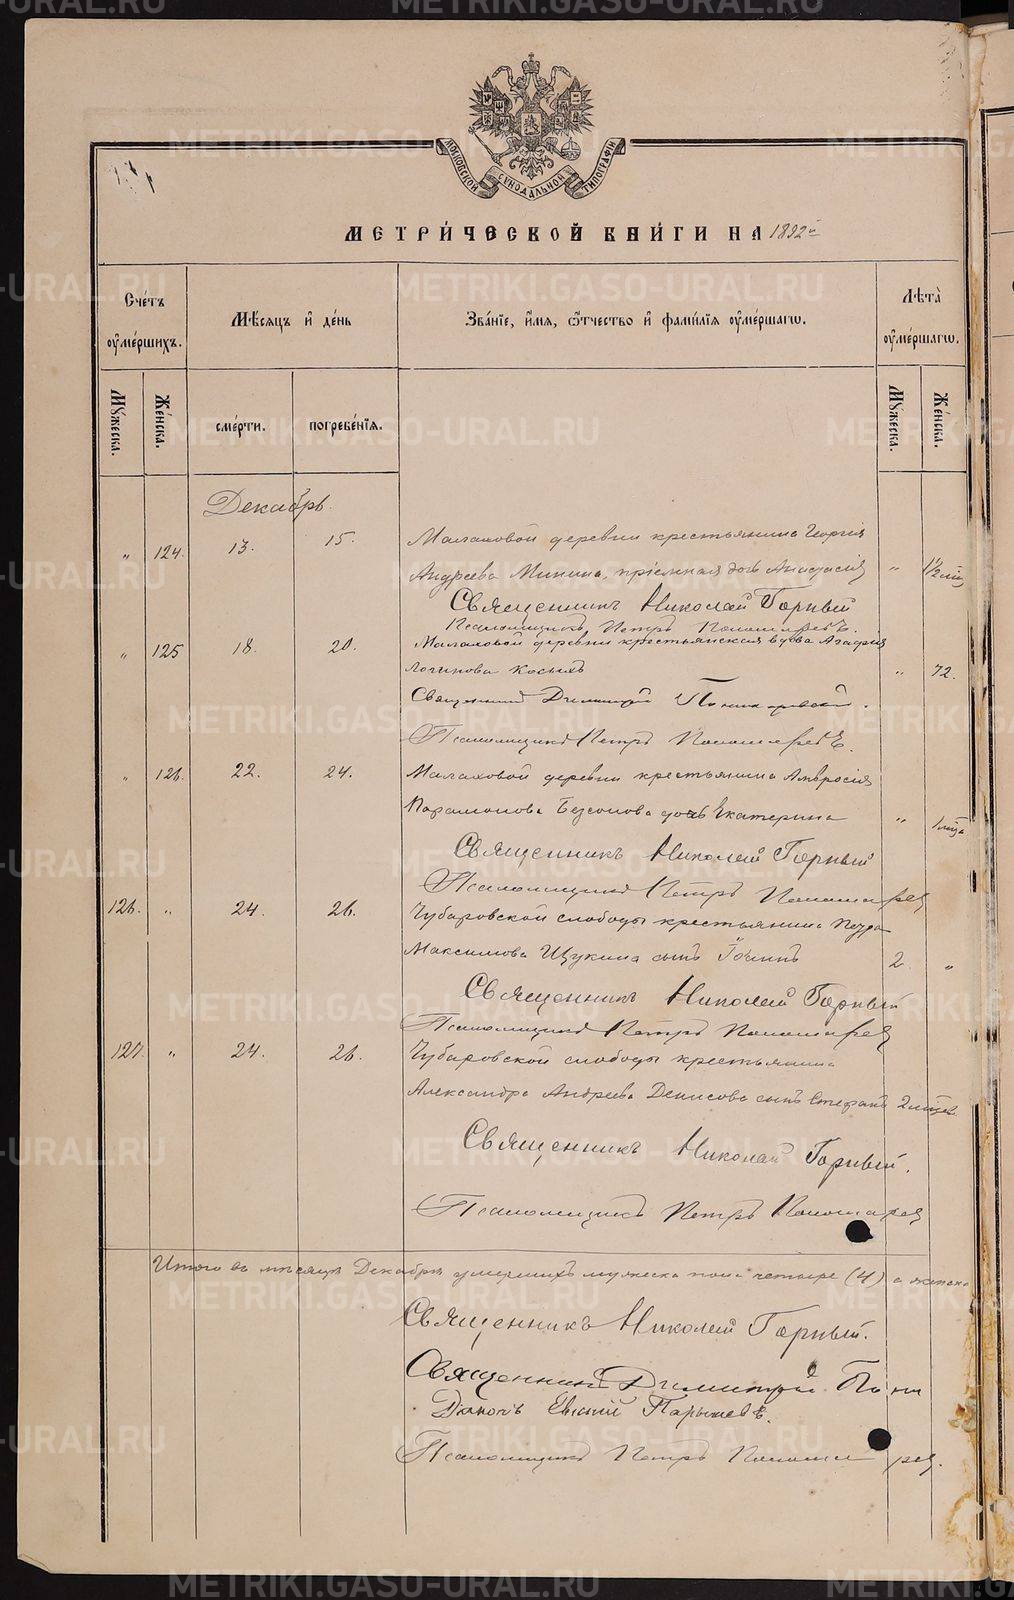 МОСКОВСКОЙ СѴНОДАЛЬНОЙ ТИПОГРАФІИ
МЕТРИ́ЧЕСКОЙ КНИ́ГИ НА 1892й
Сче́тъ ᲂу҆ме́ршихъ.
Мѣ́сяцъ и҆ де́нь
Зва́нїе, и҆́мя, ѻ҆́тчество и҆ фами́лїя ᲂу҆ме́ршагѡ.
Лѣ́та ᲂу҆ме́ршагѡ.
Мꙋ́жеска.
Же́нска.
сме́рти.
погребе́нїя.
Мꙋ́жеска.
Же́нска.
Декабрь.
" 124. 13. 15. Малаховой деревни крестьянина Георгія
Андреева Минина, пріемная дочь Анастасія " 1½
Священникъ Николай Горный
Псаломщикъ Петръ Пономаревъ.
" 125 18. 20. Малаховой деревни крестьянская вдова Агафія
Логинова Косыхъ " 72.
Священникъ Димитрій
Псаломщикъ Петръ Пономаревъ.
" 126. 22. 24. Малаховой деревни крестьянина Амвросія
Парамонова Безсонова дочь Екатерина "
Священникъ Николай Горный
Псаломщикъ Петръ Пономарев
126. " 24. 26. Чубаровской слободы крестьянина Петра
Максимова Щукина сынъ Іоаннъ 2 "
Священникъ Николай Горный
Псаломщикъ Петръ Пономарев
127. " 24. 26. Чубаровской слободы крестьянина
Александра Андреева Денисова сынъ Стефанъ 2 мѣсяц.
Священникъ Николай Горный.
Псаломщикъ Петръ Пономарев
Итого въ мѣсяцѣ Декабрѣ умершихъ мужеска пола четыре (4) а женска
Священникъ Николай Горный.
Священникъ Димитрій Пони
Діаконъ Евгеній Парышевъ.
Псаломщикъ Петръ Пономарев.
METRIKI.GASO-URAL.RU